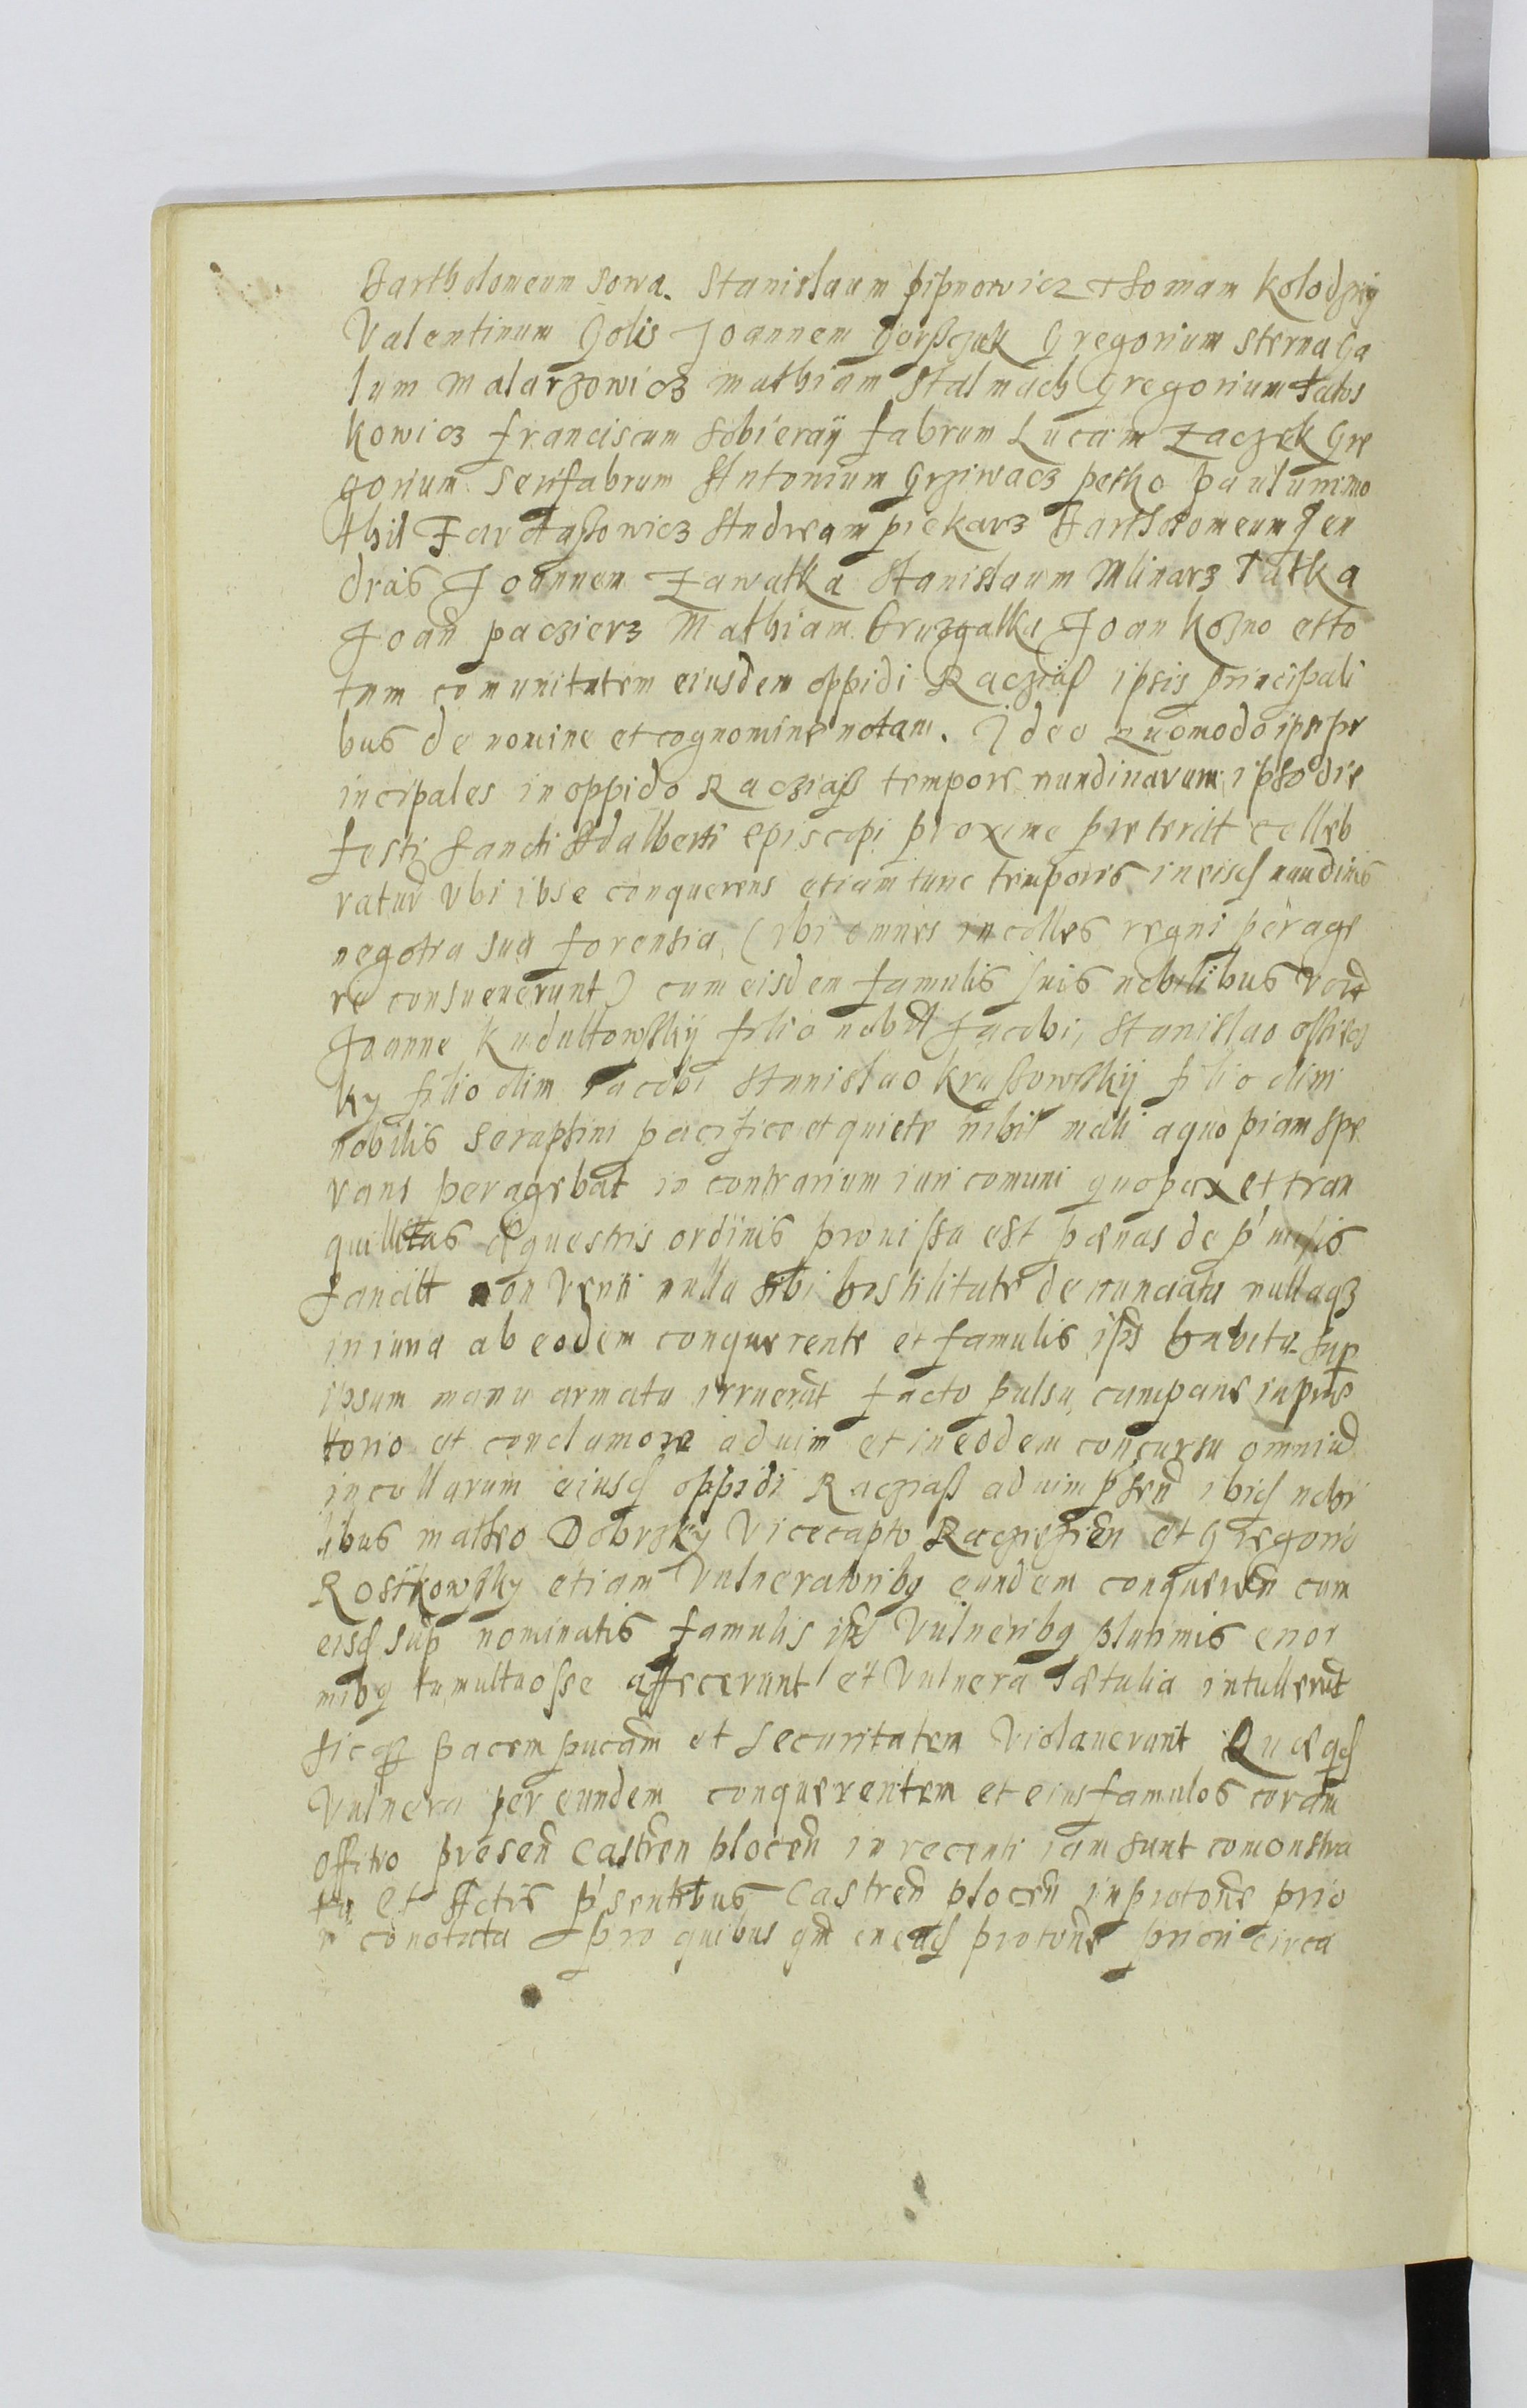 Bartholomeum Sowa. Stanislaum pipnowicz Thomam Kolodziey
Valentinum Golis Joannem Gorsczak Gregorium Sterna Ga
lum Malarzowicz Mathiam Stalmach Gregorium
kowicz franciscum Sobieraÿ fabrum Lucam Zaczek Gre
gorium Serifabrum Antonium Grziwacz petko paulum mo
thil Andream piekarz Bartholomeum Jen
dras Joannem Zawatka Stanislaum Mlinarz Tatka
Joan paczierz Mathiam Gruzgalka Joan Kosno et to
tam comunitatem eiusdem oppidi Racziaß ipsis principali
bus de nomine et cognomine notam. Ideo Quomodo ipsi pr
incipales in oppido Racziaß tempore nundinarum ipso die
festi Sancti Adalberti Episcopi proxime preterit celleb
ratur Vbi ibse conquerens etiam tunc temporis in eisd nundinis
negotia sua forensia (vbi omnes incolles regni perage
re consueuerunt) cum eisdem famulis suis nobilibus
Joanne Kudultowskÿ filio nobil Jacobi, Stanislao
ky filio olim Jacobi Stanislao Krassowskÿ filio olim
nobilis Seraphini pacifice et quiete nihil mali a quopiam spe
rans peragebat in contrarium iuri comuni quo pax et tran
quillitas equestris ordinis prouissa est pænas de p'missis
sancitt non Verti nulla sibi hostilitate denunciata nullaqz
iniuria ab eodem conquerente et famulis ips habita sup
ipsum manu armata irruerut facto pulsu campane in
torio et conclamore ad uim et in eodem concursu omniu
incollarum eiusd oppidi Racziaß ad uim ibid nobi
libus Matheo Dobrzky Vicecapto Raczieziën et Gregorio
Rostkowsky etiam Vulneratoribq eundem conqueren cum
eisd sup nominatis famulis ips Vulneribq plurimis enor
mibq tumultuosse affecerunt et Vulnera lætalia intullerut
sicqz pacem pucam et securitatem Violauerunt Quæqd
Vulnera per eundem conquerentem et eius famulos coram
offitio presen Castren plocen in recenti iam sunt comonstra
ta et Actis p'sentibus Castren plocen in protone prio
r conotata pro quibus qm in eisd protone priori circa